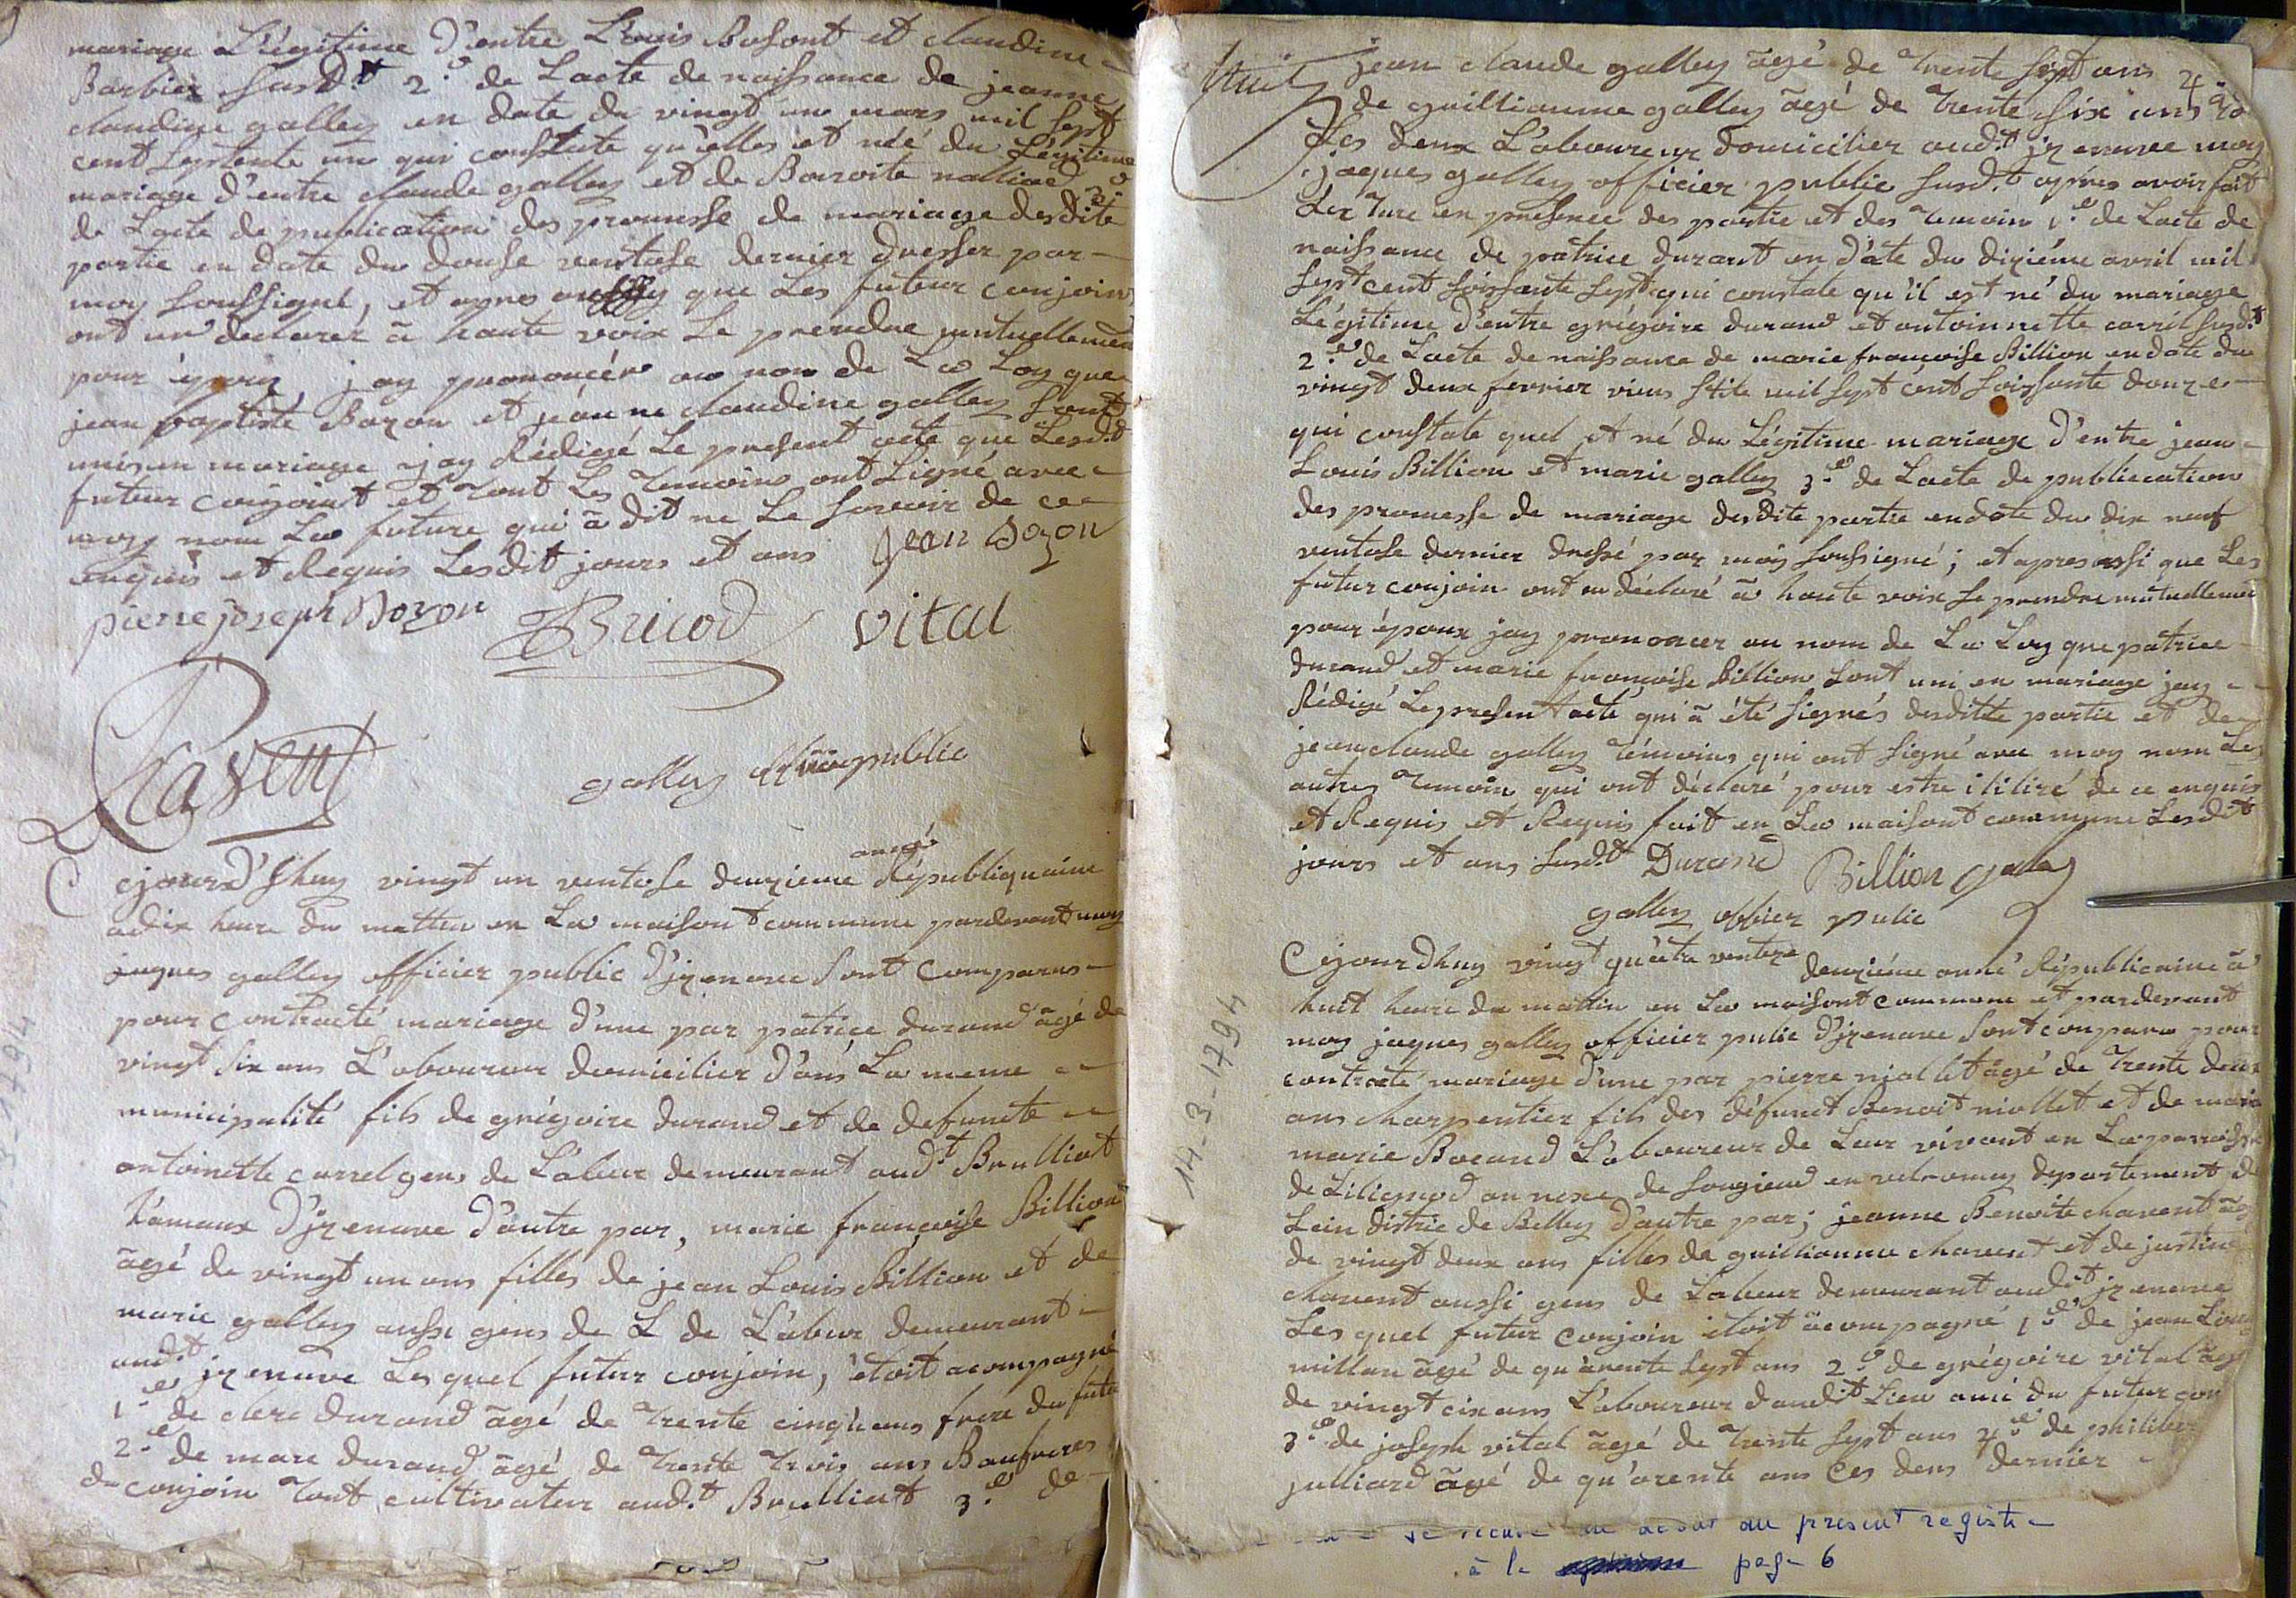 mariage Légitime d'entre Louis Bosont et claudine
Barbier susd.t 2.e de Lacte de naissance de jeanne
claudine galley en date du vingt un mars mil sept
cent septente un qui constate qu'elles et néé du Légitime
mariage d'entre claude galley et de Benoite nalliod 3.e
de Lacte de publication des promesse de mariage desdite
partie en date du douse ventose dernier dresser par
moy soussigné, et apres aussy que Les futur conjoins
ont un declarer à haute voix Se prendre mutuellement
pour époux, jay prononcér au nom de La Loy que
jean baptiste Bozon et jeanne claudine galley sont
unis en mariage jay Rédigé Le present acte que Lesd.t
futur conjoint et tout Les temoins ont signé avec
moy nom La future qui à dit ne Le savoir de ce
enquis et Requis Lesdit jours et ans jean Bozon
pierre joseph Bozon Bricod vital
Ravent
galley officier public
année
Cejourd'huy vingt un ventose deuzieme Républiquaine
adix heure du mattin en La maisont commune pardevant moy
jaques galley officier public d'jzenave sont comparus
pour contracté mariage d'une par patrice durand âgé de
vingt six ans L'aboureur domicilier d'ans La meme
municipalité fils de grégoire durand et de defuncte
antoinette carrel gens de Labeur demeurant aud.t Brulliat
hamaux D'jzenave d'autre par, marie françoise Billion
âgé de vingt un ans filles de jean Louis Billion et de
marie galley aussi gens de L de L'abur demeurant
aud.t jzenave Les quel futur conjoin, étoit acompagné
1.e de clerc durand âgé de trente cinq ans frere du futur
2.e de marc durand âgé de trente trois ans Baufreres
du conjoin tout cultivateur aud.t Brulliat 3.e de
jean claude galley âgé de trente sept ans 4.e
de guillaume galley âgé de trente six ans
Les deux L'aboureur domicilier aud.t jzenave moy
jaques galley officier public susd.t apres avoir fait
Lecture en presence des partie et des temoin 1.e de Lacte de
naissance de patrice durant en date du dixiéme avril mil
sept cent soissante sept qui constate qu'il est né du mariage
Légitime d'entre grégoire durand et antoinnette carril susd.t
2.e de Lacte de naissance de marie françoise Billion en date du
vingt deux fevrier vieus stile mil sept cent soissante douze
qui constate quel et né du Légitime mariage d'entre jean
Louis Billion et marie galley 3.e de Lacte de publiecation
des promesse de mariage desdite partie en date du dix neuf
ventose dernier dressé par moy soussigné; et apres assi que Les
futur conjoin ont un déclaré à haute voix se prendre mutuellement
pour époux jay prononcer au nom de La Loy que patrice
durand et marie françoise Billion sont uni en mariage jay
Rédigé Le present acte qui à été signés desditte partie et de
jean claude galley témoins qui ont signé avec moy nom Les
autres temoin qui ont déclaré pour estre ililiré de ce enquis
et Requis et Requis fait en La maisont commune Lesdit
jours et ans susd.t Durand Billion galley
galley officier pulic
Cejourdhuy vingt quatre ventoze deuziéme anné Républicaine à
huit heure du mattin en La maisont commune et pardevant
moy jaques galley officier pulic d'jzenave sont comparu pour
contracté mariage d'une par pierre niollet âgé de trente deux
ans charpentier fils des défunct Benoit niollet et de marie
marie Bocand L'aboureur de Leur vivant en La parroisse
de Lilignod annexe de songieu en valromey departement de
Lein distric de Belley d'autre par; jeanne Benoite chavent âgé
de vingt deux ans filles de guillianme chavent et de justine
chavent aussi gens de Labeur demeurant audit jzenave
Les quel futur conjoin étoit acompagné 1.e de jean Louis
millan âgé de quarente sept ans 2.e de grégoire vital âgé
de vingt cix ans L'aboureur daudit Lieu amie du futur con
3.e de joseph vital âgé de trente sept ans 4.e de philiber
julliard âgé de qu'arente ans Ces deus dernier
14-3-1794
au present registre
à la page 6